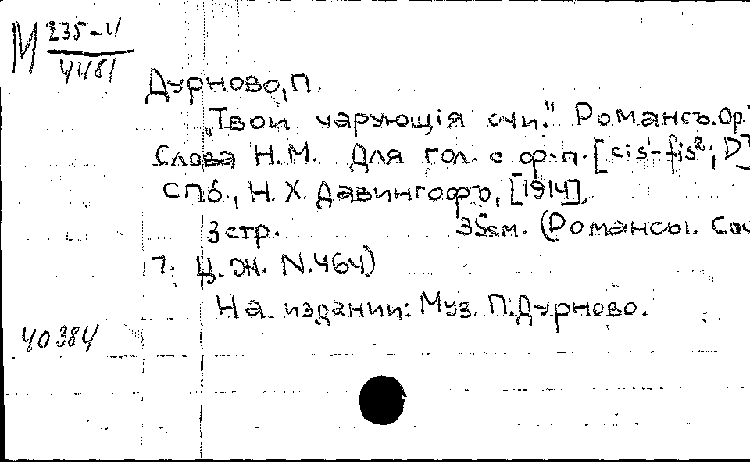 М 235-II
4481
Дурново, П.
"Твои чарующія очи." Романсъ. Ор.
Слова Н.М. Для гол. с ф.-п. [cis¹-fis²; D]
СПб., Н. Х. Давингофъ, [1914].
3 стр. 35см. (Романсы. Соч
7. Ц. Ж. N.464)
На издании: Муз. П. Дурново.
40384